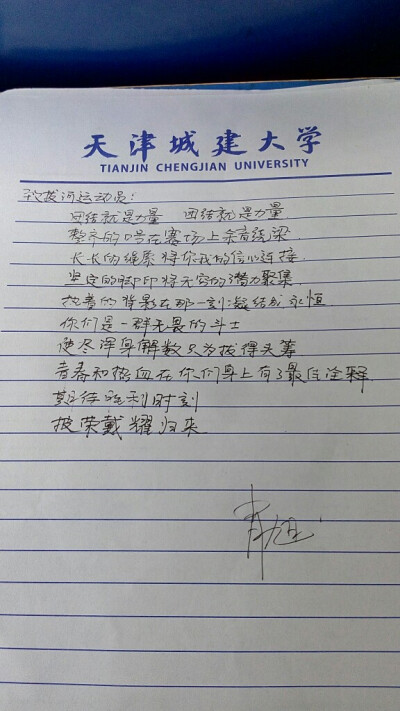 天津城建大学
TIANJIN CHENGJIAN UNIVERSITY
致拔河运动员:
团结就是力量 团结就是力量
整齐的口号在赛场上余音绕梁
长长的绳索将你我的信心连接
坚定的脚印将无穷的潜力聚集
执着的背影在那一刻凝结成永恒
你们是一群无畏的斗士
使尽浑身解数只为拔得头筹
青春和热血在你们身上有了最佳诠释
期待胜利时刻
披荣戴耀归来